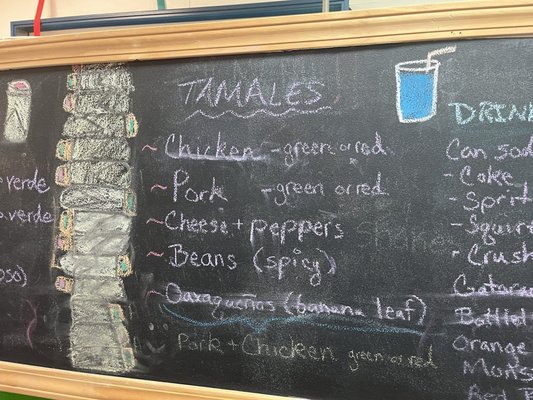 verde
verde
oso)
TAMALES
~ Chicken - green or red
~ Pork - green or red
~ Cheese + peppers
~ Beans (spicy)
~ Oaxaqueñas (banana leaf)
Pork + Chicken green or red
DRIN
Can sod
- Coke
- Sprit
- Squir
- Crush
Gatora
Bottled
Orange